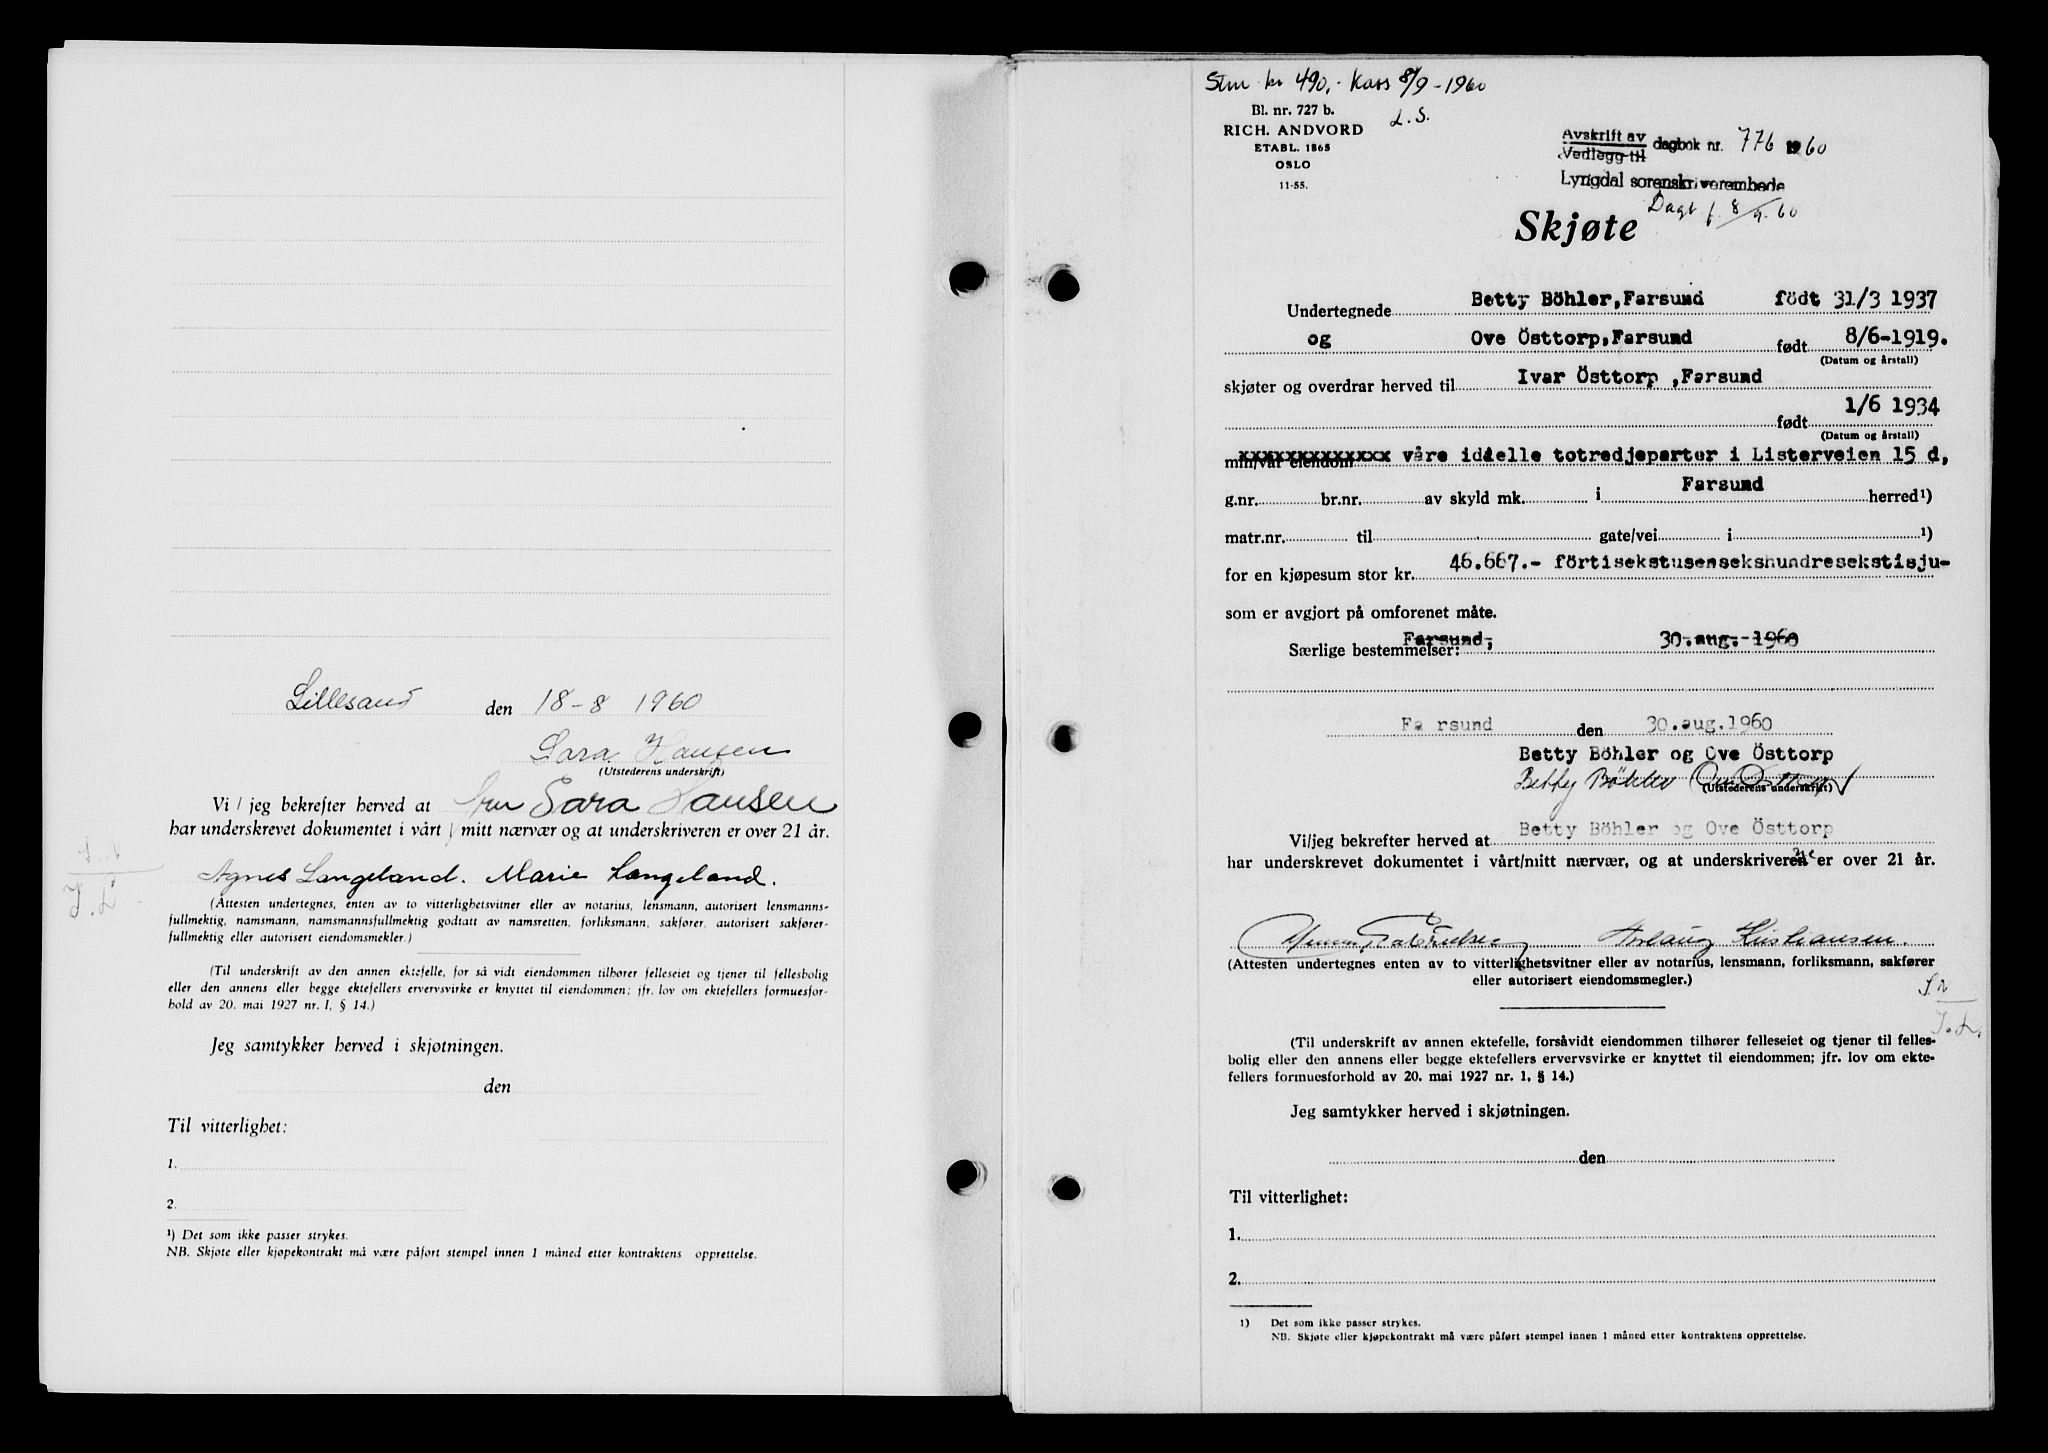 Lillesand den 18-8 1960
Sara Hansen
(Utstederens underskrift)
Vi / jeg bekrefter herved at fru Sara Hansen
har underskrevet dokumentet i vårt / mitt nærvær og at underskriveren er over 21 år.
Agnes Langeland. Marie Langeland.
(Attesten undertegnes, enten av to vitterlighetsvitner eller av notarius, lensmann, autorisert lensmanns-
fullmektig, namsmann, namsmannsfullmektig godtatt av namsretten, forliksmann, sakfører, autorisert sakfører-
fullmektig eller autorisert eiendomsmekler.)
(Til underskrift av den annen ektefelle, for så vidt eiendommen tilhører felleseiet og tjener til fellesbolig
eller den annens eller begge ektefellers ervervsvirke er knyttet til eiendommen; jfr. lov om ektefellers formuesfor-
hold av 20. mai 1927 nr. 1, § 14.)
Jeg samtykker herved i skjøtningen.
den
Til vitterlighet:
1.
2.
¹) Det som ikke passer strykes.
NB. Skjøte eller kjøpekontrakt må være påført stempel innen 1 måned etter kontraktens opprettelse.
Stm kr 490,- Kass 8/9-1960
L.S.
Bl. nr. 727 b.
RICH. ANDVORD
ETABL. 1865
OSLO
11-55.
Avskrift av
Vedlegg til dagbok nr. 776 1960
Lyngdal sorenskriverembede
Dagb f. 8/9.60
Skjøte
Undertegnede Betty Böhler,Farsund födt 31/3 1937
og Ove Østtorp,Farsund født 8/6-1919.
(Datum og årstall)
skjøter og overdrar herved til Ivar Östtorp ,Farsund
født 1/6 1934
(Datum og årstall)
min/vår eiendom xxxxxxxxxxxxx våre idielle totredjeparter i Listerveien 15 d,
g.nr. br.nr. av skyld mk. i Farsund herred¹)
matr.nr. til gate/vei i ¹)
for en kjøpesum stor kr. 46.667.- förtisekstusensekshundresekstisju-
som er avgjort på omforenet måte.
Særlige bestemmelser: Farsund, 30.aug.-1960
Fa rsund den 30.aug.1960
Betty Böhler og Ove Östtorp
Betty Böhler Ove Østtorp
(Utstederens underskrift)
Vi/jeg bekrefter herved at Betty Böhler og Ove Östtorp
har underskrevet dokumentet i vårt/mitt nærvær, og at underskriverene er over 21 år.
Kristiansen.
(Attesten undertegnes enten av to vitterlighetsvitner eller av notarius, lensmann, forliksmann, sakfører
eller autorisert eiendomsmegler.)
(Til underskrift av annen ektefelle, forsåvidt eiendommen tilhører felleseiet og tjener til felles-
bolig eller den annens eller begge ektefellers ervervsvirke er knyttet til eiendommen; jfr. lov om ekte-
fellers formuesforhold av 20. mai 1927 nr. 1, § 14.)
Jeg samtykker herved i skjøtningen.
den
Til vitterlighet:
1.
2.
1) Det som ikke passer strykes.
NB. Skjøte eller kjøpekontrakt må være påført stempel innen 1 måned etter kontraktens opprettelse.